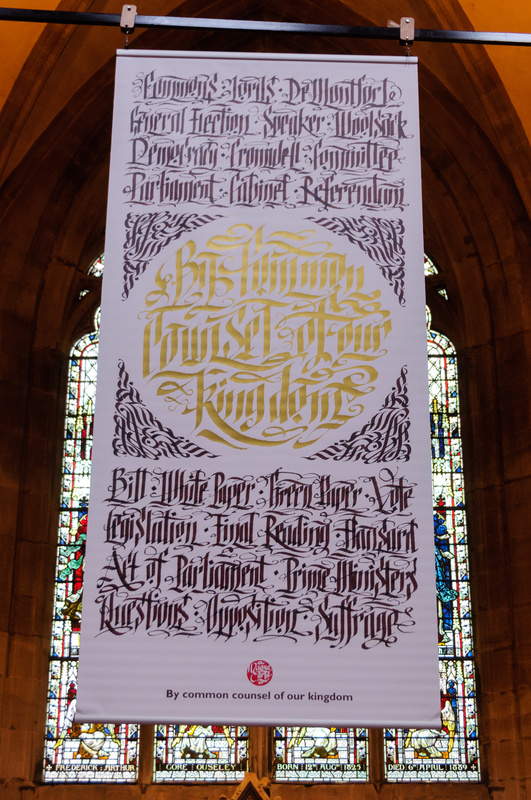 Commons · Lords · De Montfort
General Election · Speaker · Woolsack
Democracy · Cromwell · Committee
Parliament · Cabinet · Referendum
By Common
Counsel of our
Kingdom
Bill · White Paper · Green Paper · Vote
Legislation · Final Reading · Hansard
Act of Parliament · Prime Ministers
Questions · Opposition · Suffrage
By common counsel of our kingdom
FREDERICK · ARTHUR
GORE · OUSELEY
BORN · 12TH AUGST 1825
DIED 6TH APRIL · 1889